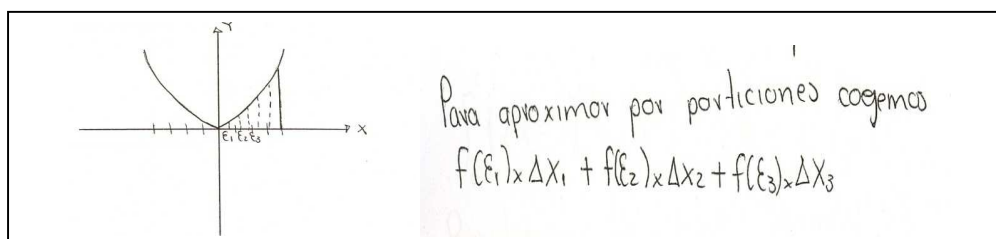 Y
X
ε₁ ε₂ ε₃
Para aproximar por particiones cogemos
f(ε₁)ₓ ΔX₁ + f(ε₂)ₓ ΔX₂ + f(ε₃)ₓ ΔX₃